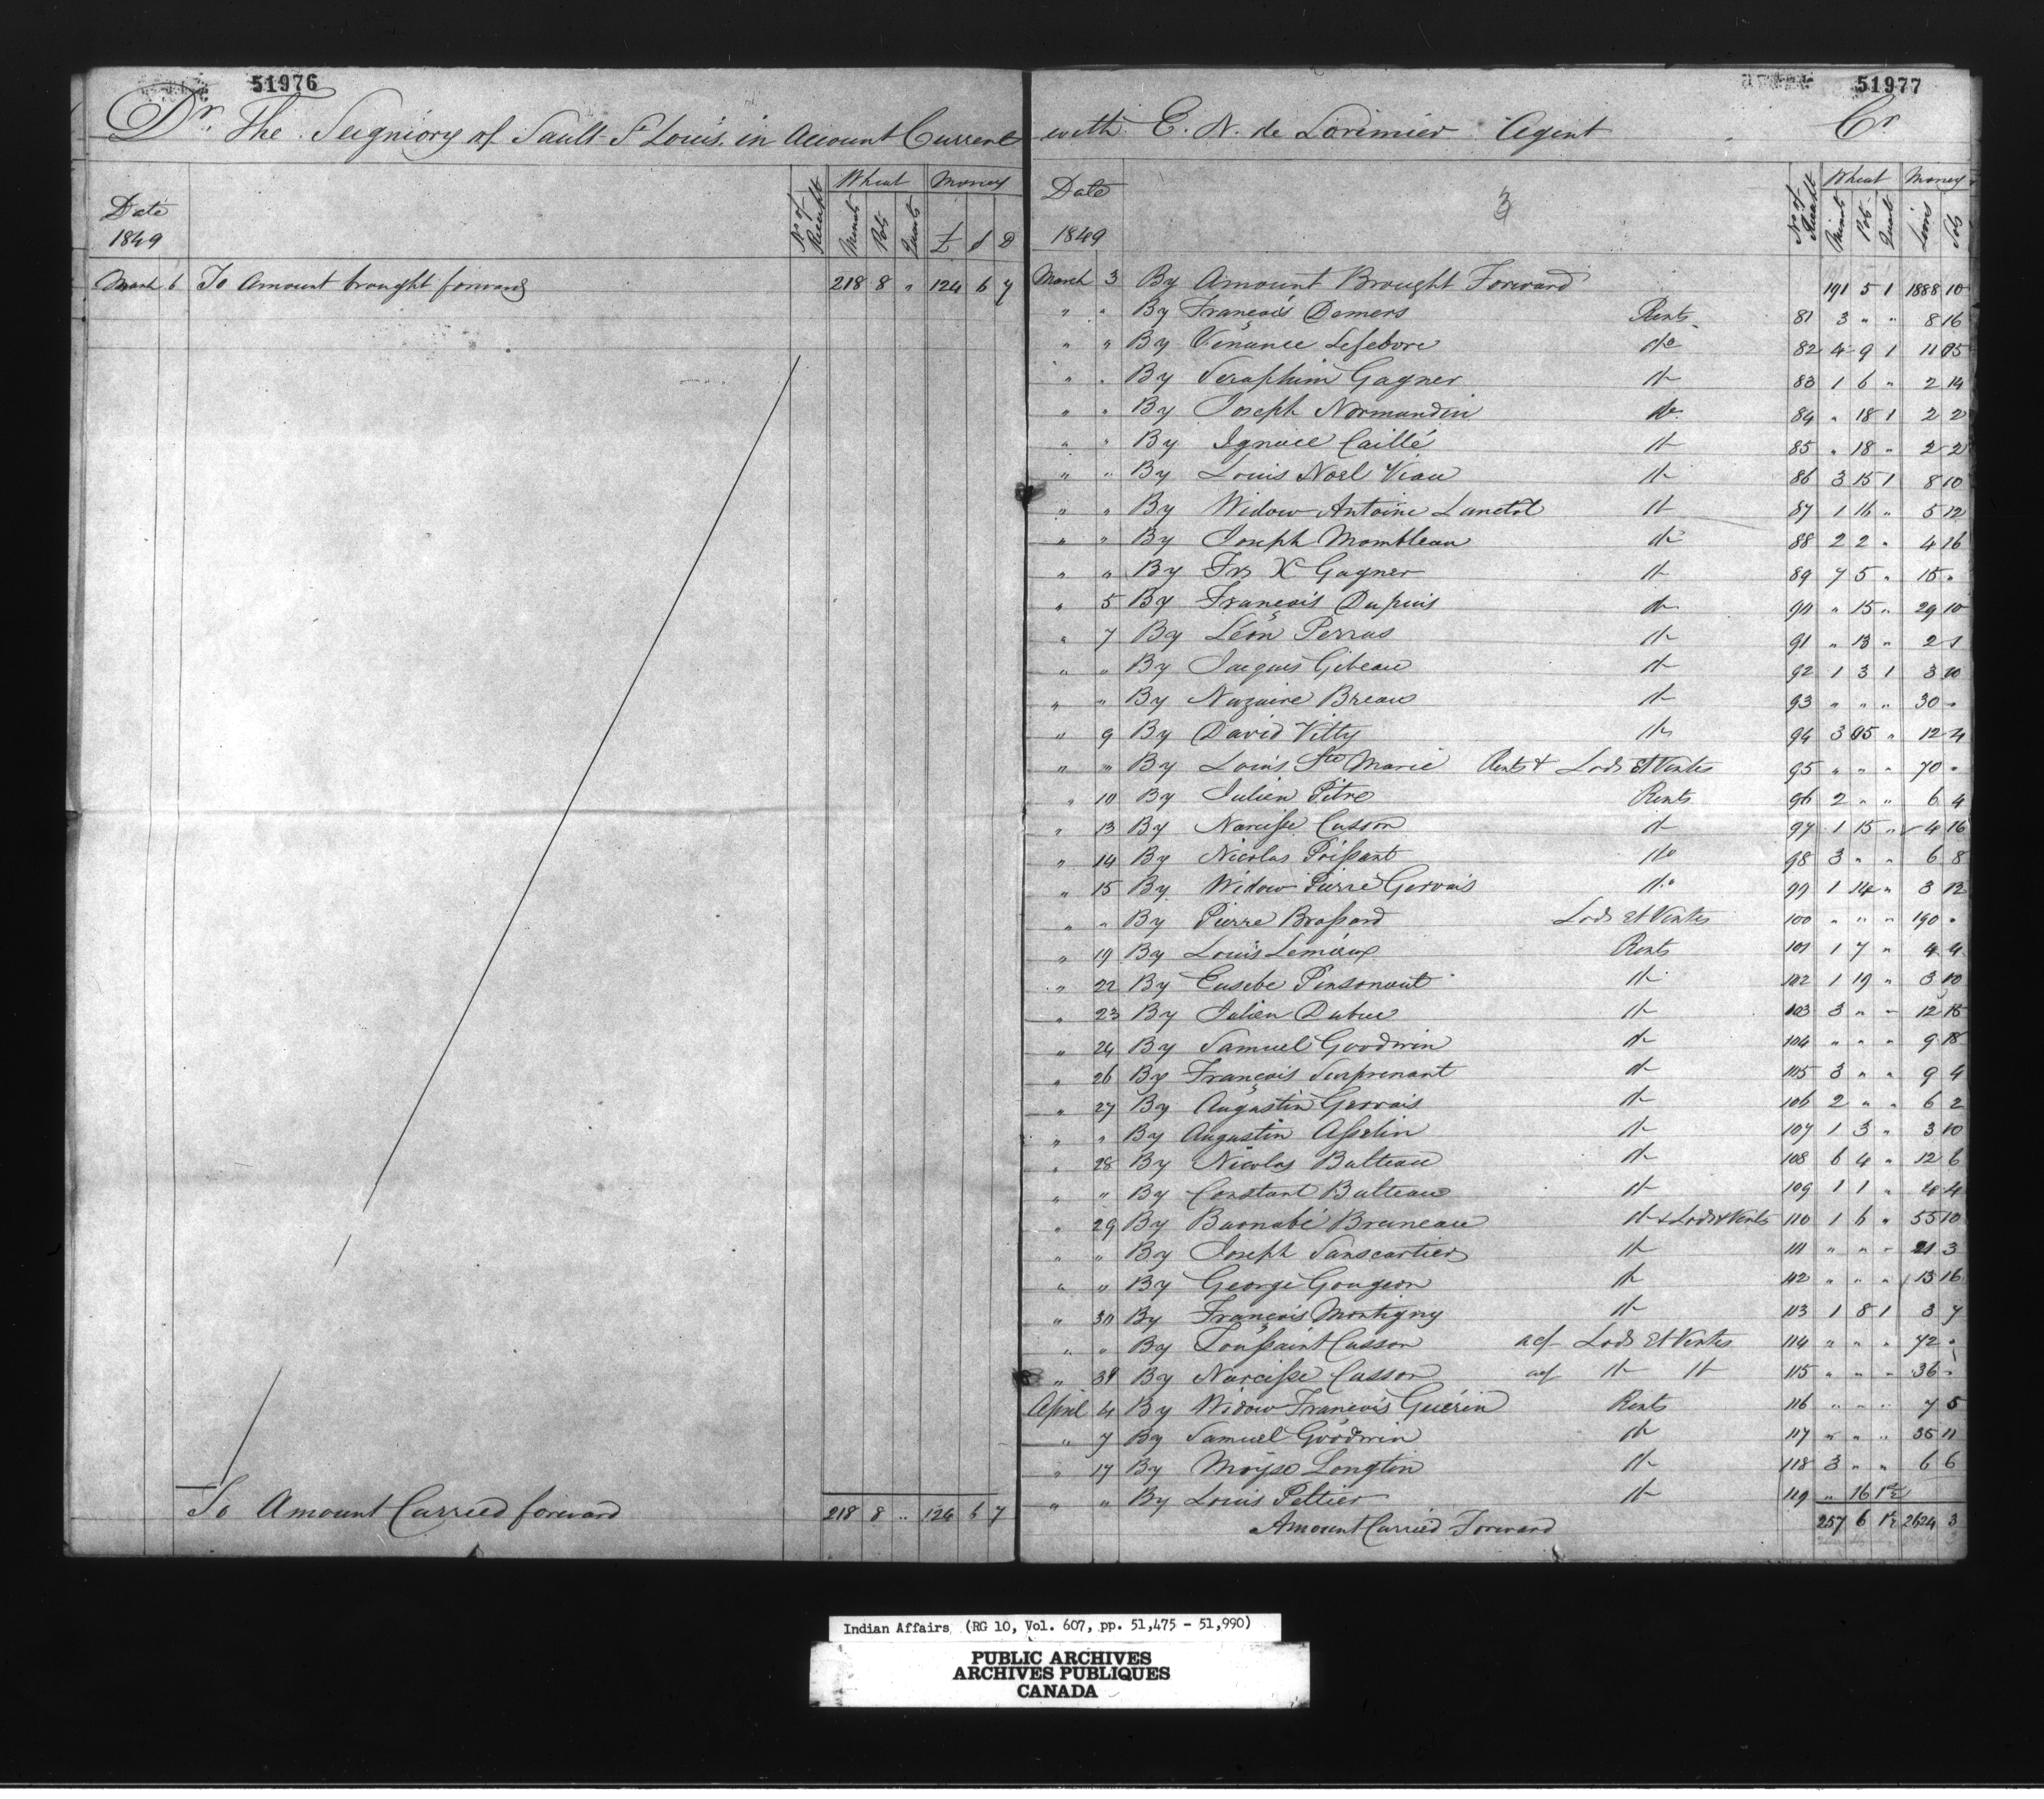 51976
Dr. The Seigniory of Sault St Louis in Account Current
Date 1849 No of Receipt Wheat Minots Pots Quarts Money £ s D
March 6 To Amount brought forward 218 8 " 124 6 7
To Amount Carried forward 218 8 " 124 6 7
51977
with E. N. de Lorimier Agent Cr
3
Date 1849 No of Receipt Wheat Minots Pots Quarts Money Livres Sols
March 3 By Amount Brought Forward 191 5 1 1888 10
" " By François Demers Rents 81 3 " " 8 16
" " By Vénance Lefebvre do 82 4 9 1 11 15
" " By Seraphim Gagner do 83 1 6 " 2 14
" " By Joseph Normandin do 84 " 18 1 2 2
" " By Ignace Caillé do 85 " 18 " 2 2
" " By Louis Noel Viau do 86 3 15 1 8 10
" " By Widow Antoine Lanctot do 87 1 16 " 5 12
" " By Joseph Mombleau do 88 2 2 " 4 16
" " By Frs X Gagner do 89 7 5 " 15 "
" 5 By François Dupuis do 90 " 15 " 29 10
" 7 By Léon Perras do 91 " 13 " 2 1
" " By Jacques Gibeau do 92 1 3 1 3 10
" " By Nazaire Breau do 93 " " " 30 "
" 9 By David Vitty do 94 3 15 " 12 4
" " By Louis Ste Marie Rents & Lods et Ventes 95 " " " 70 "
" 10 By Julien Pitre Rents 96 2 " " 6 4
" 13 By Narcisse Cusson do 97 1 15 " 4 16
" 14 By Nicolas Poissant do 98 3 " " 6 8
" 15 By Widow Pierre Gervais do 99 1 14 " 3 12
" " By Pierre Brossard Lods et Ventes 100 " " " 190 "
" 19 By Louis Lemieux Rents 101 1 7 " 4 4
" 22 By Eusebe Pinsonaut do 102 1 19 " 3 10
" 23 By Julien Dubuc do 103 3 " " 12 15
" 24 By Samuel Goodwin do 104 " " " 9 18
" 26 By François Surprenant do 105 3 " " 9 4
" 27 By Augustin Gervais do 106 2 " " 6 2
" " By Augustin Asselin do 107 1 3 " 3 10
" 28 By Nicolas Bulteau do 108 6 4 " 12 6
" " By Constant Bulteau do 109 1 1 " 4 4
" 29 By Barnabé Bruneau do & Lods & Vents 110 1 6 " 55 10
" " By Joseph Sanscartier do 111 " " " 21 3
" " By George Gougeon do 112 " " " 13 16
" 30 By François Montigny do 113 1 8 1 3 7
" " By Toussaint Cusson acf Lods et Ventes 114 " " " 72 "
" 31 By Narcisse Cusson acf do do 115 " " " 36 "
April 4 By Widow François Guérin Rents 116 " " " 7 5
" 7 By Samuel Goodwin do 117 " " " 35 11
" 17 By Moyse Longtin do 118 3 " " 6 6
" " By Louis Peltier do 119 " 16 1½
Amount Carried Forward 257 6 1½ 2624 3
Indian Affairs (RG 10, Vol. 607, pp. 51,475 - 51,990)
PUBLIC ARCHIVES
ARCHIVES PUBLIQUES
CANADA